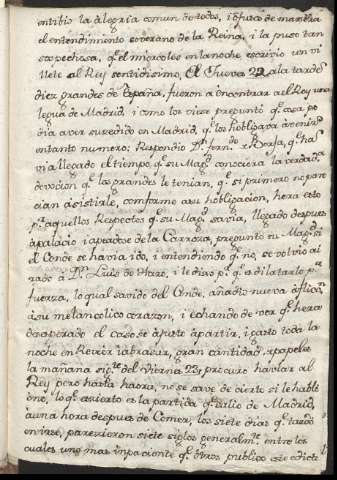 entibio la alegria comun de todos, i ofusco de manera
el entendimiento soverano de la Reina, i la puso tan
sospechosa, q.e el miercoles en la noche escrivio un vi
llete al Rey sentidisimo, el Jueves 22, a la tarde
diez grandes de España, fueron a encontrar al Rey una
legua de Madrid, i como los viese preguntó q.e cosa po
dia aver susedido en Madrid, q.e los hobligava a venir
en tanto numero; Respondio D.n
via llegado el tiempo, q.e su Mag.d conociera la verdad.a
devocion q.e los grandes le tenian, q.e si primero no pare
cian a sistirle, conforme a su hobligacion, hera esto
p.r aquellos Respectos q.e su Mag.d savia, llegado despues
a palacio i apeados de la Carroza, preguntó su Mag.d si
el Conde se havia ido, i entendiendo q.e no, se volvió ai
rado a D.n Luis de Haro, i le dixo p.r q.e a dilatarlo p.r
fuerza, lo qual savido del Conde, añadio nueva aflicc.n
a su melancolico corazon, i echando de ver q.e hera
desesperado el caso se dispuso a partir, i gasto toda la
noche en Rever i abrasar, gran cantidad de papeles
la mañana sig.te del Viernes 23, procuro havlar al
Rey pero hasta haora, no se save de cierto si le hablo
ó no, lo q.e es cierto es la partida q.e salio de Madrid,
a una hora despues de Comer, los siete dias q.e tardó
en irse, parecieron siete siglos generalm.te entre los
cuales uno mas inpaciente q.e otros publico este edicto